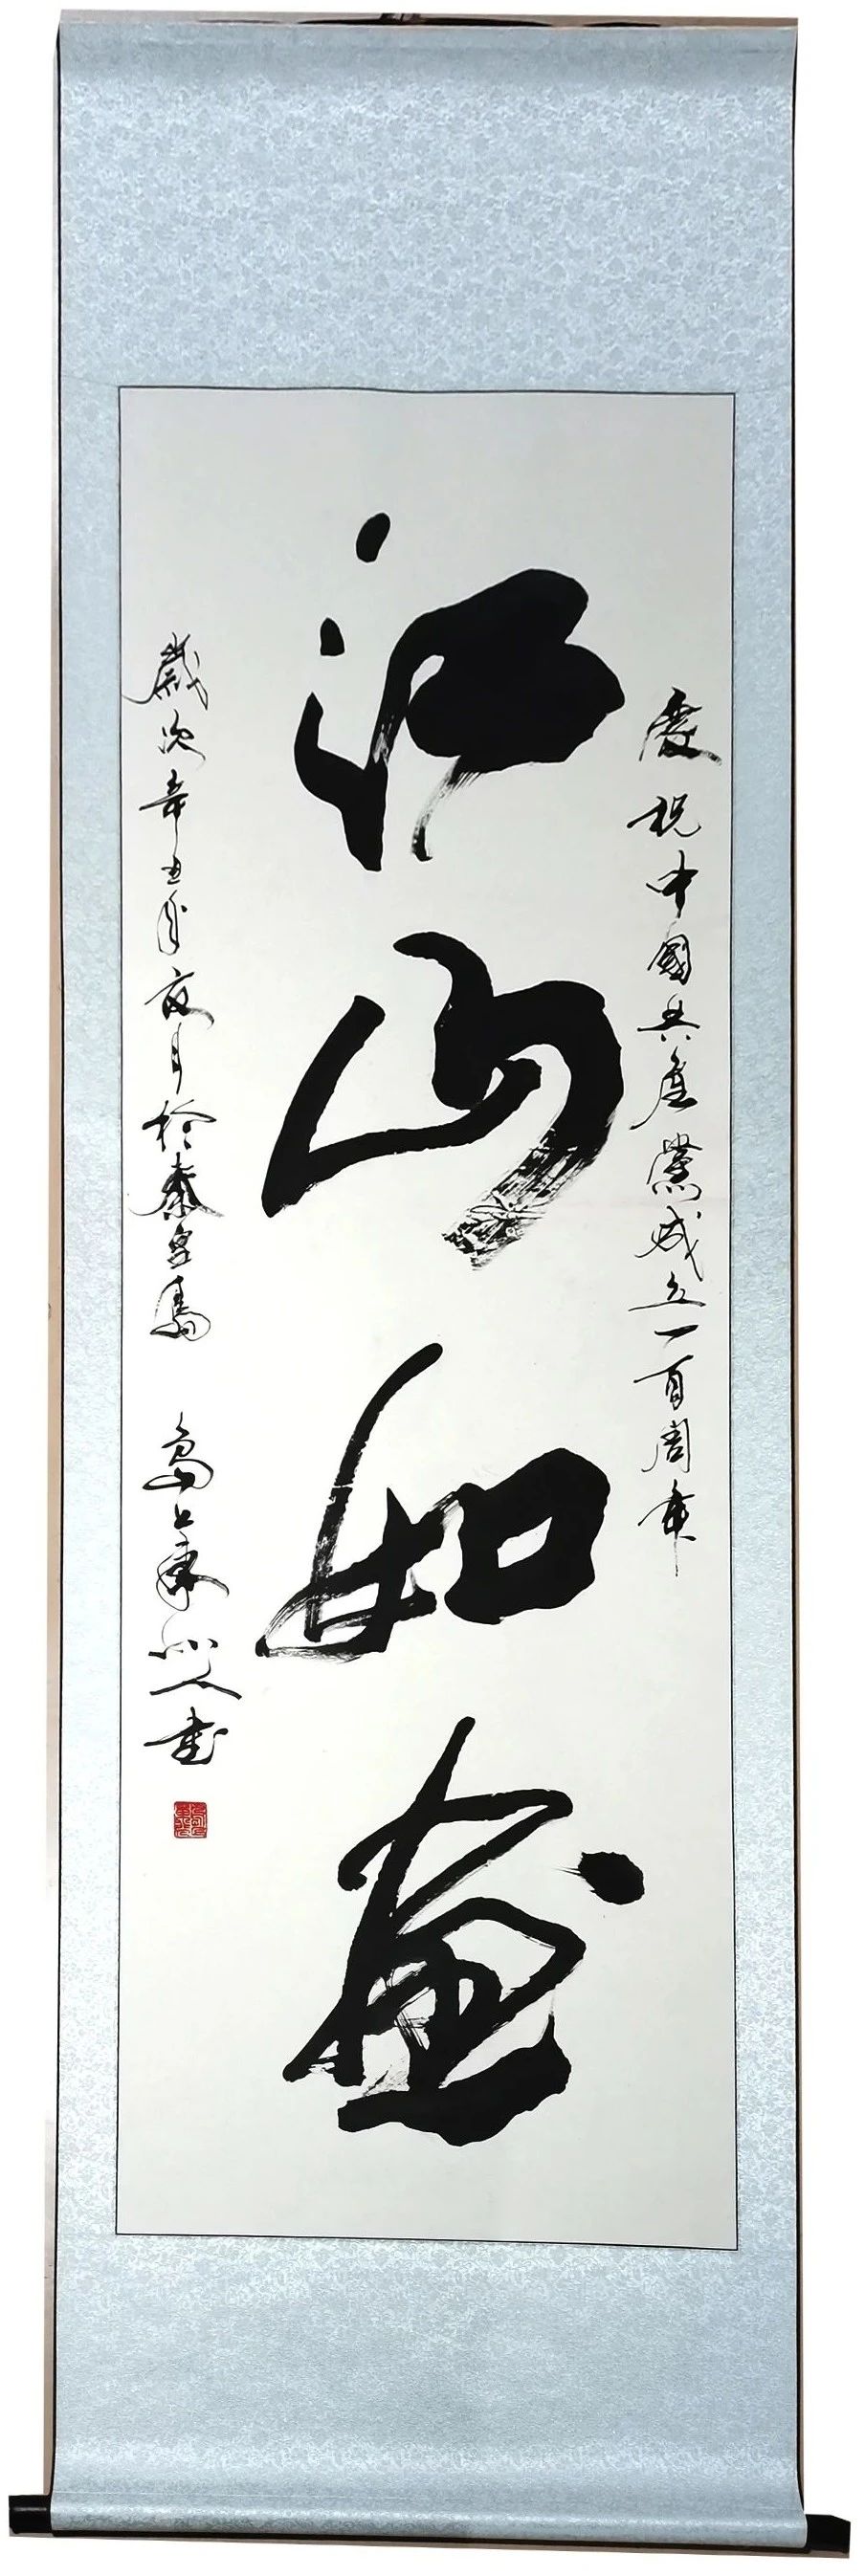 慶祝中國共產黨成立一百周年
江山如畫
歲次辛丑年夏月於秦皇島 島上
人書